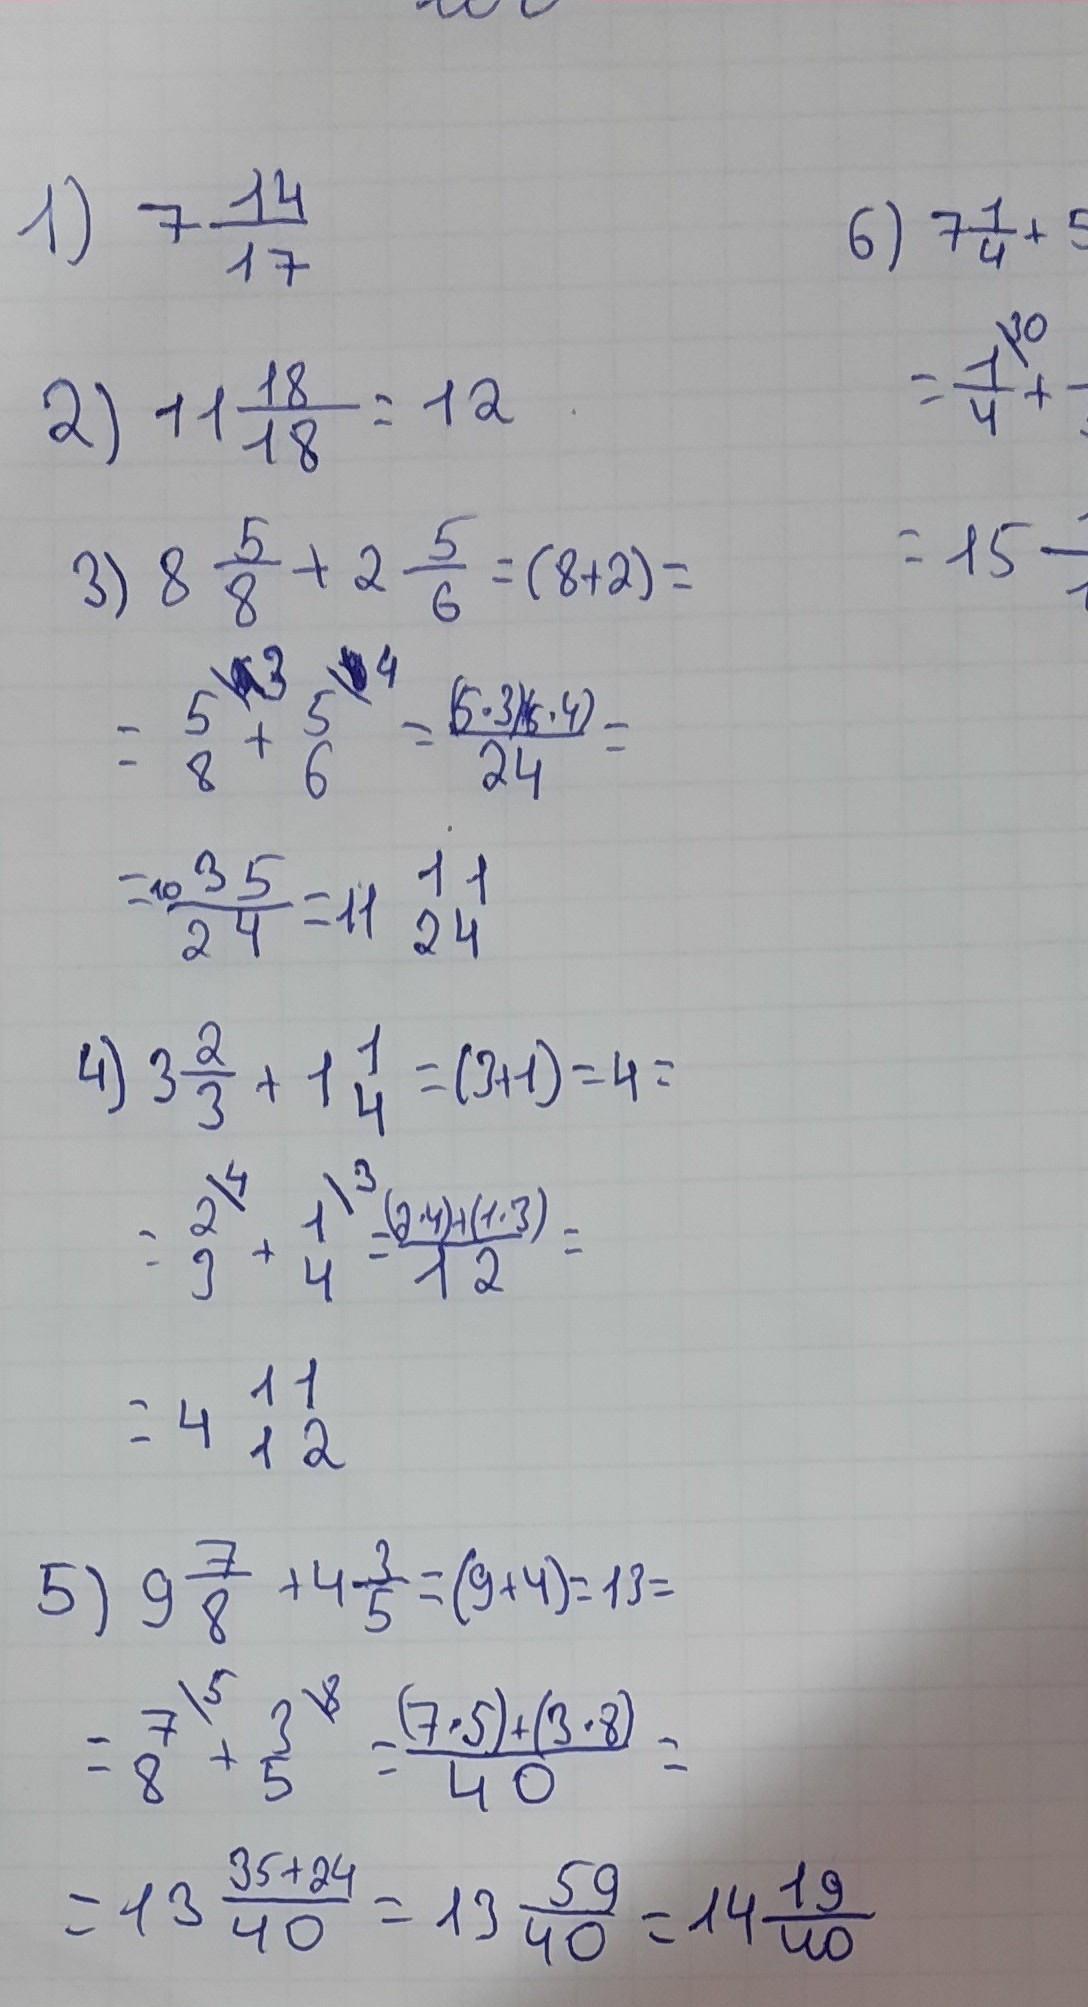 1) 7 14/17
2) 11 18/18 = 12
3) 8 5/8 + 2 5/6 = (8+2) =
= 5/8 \3 + 5/6 \4 = (5·3)(5·4)/24 =
= 10 35/24 = 11 11/24
4) 3 2/3 + 1 1/4 = (3+1) = 4 =
= 2/3 \4 + 1/4 \3 = (2·4)+(1·3)/12 =
= 4 11/12
5) 9 7/8 + 4 3/5 = (9+4) = 13 =
= 7/8 \5 + 3/5 \8 = (7·5)+(3·8)/40 =
= 13 35+24/40 = 13 59/40 = 14 19/40
6) 7 1/4 + 5
= 1/4 \30 +
= 15